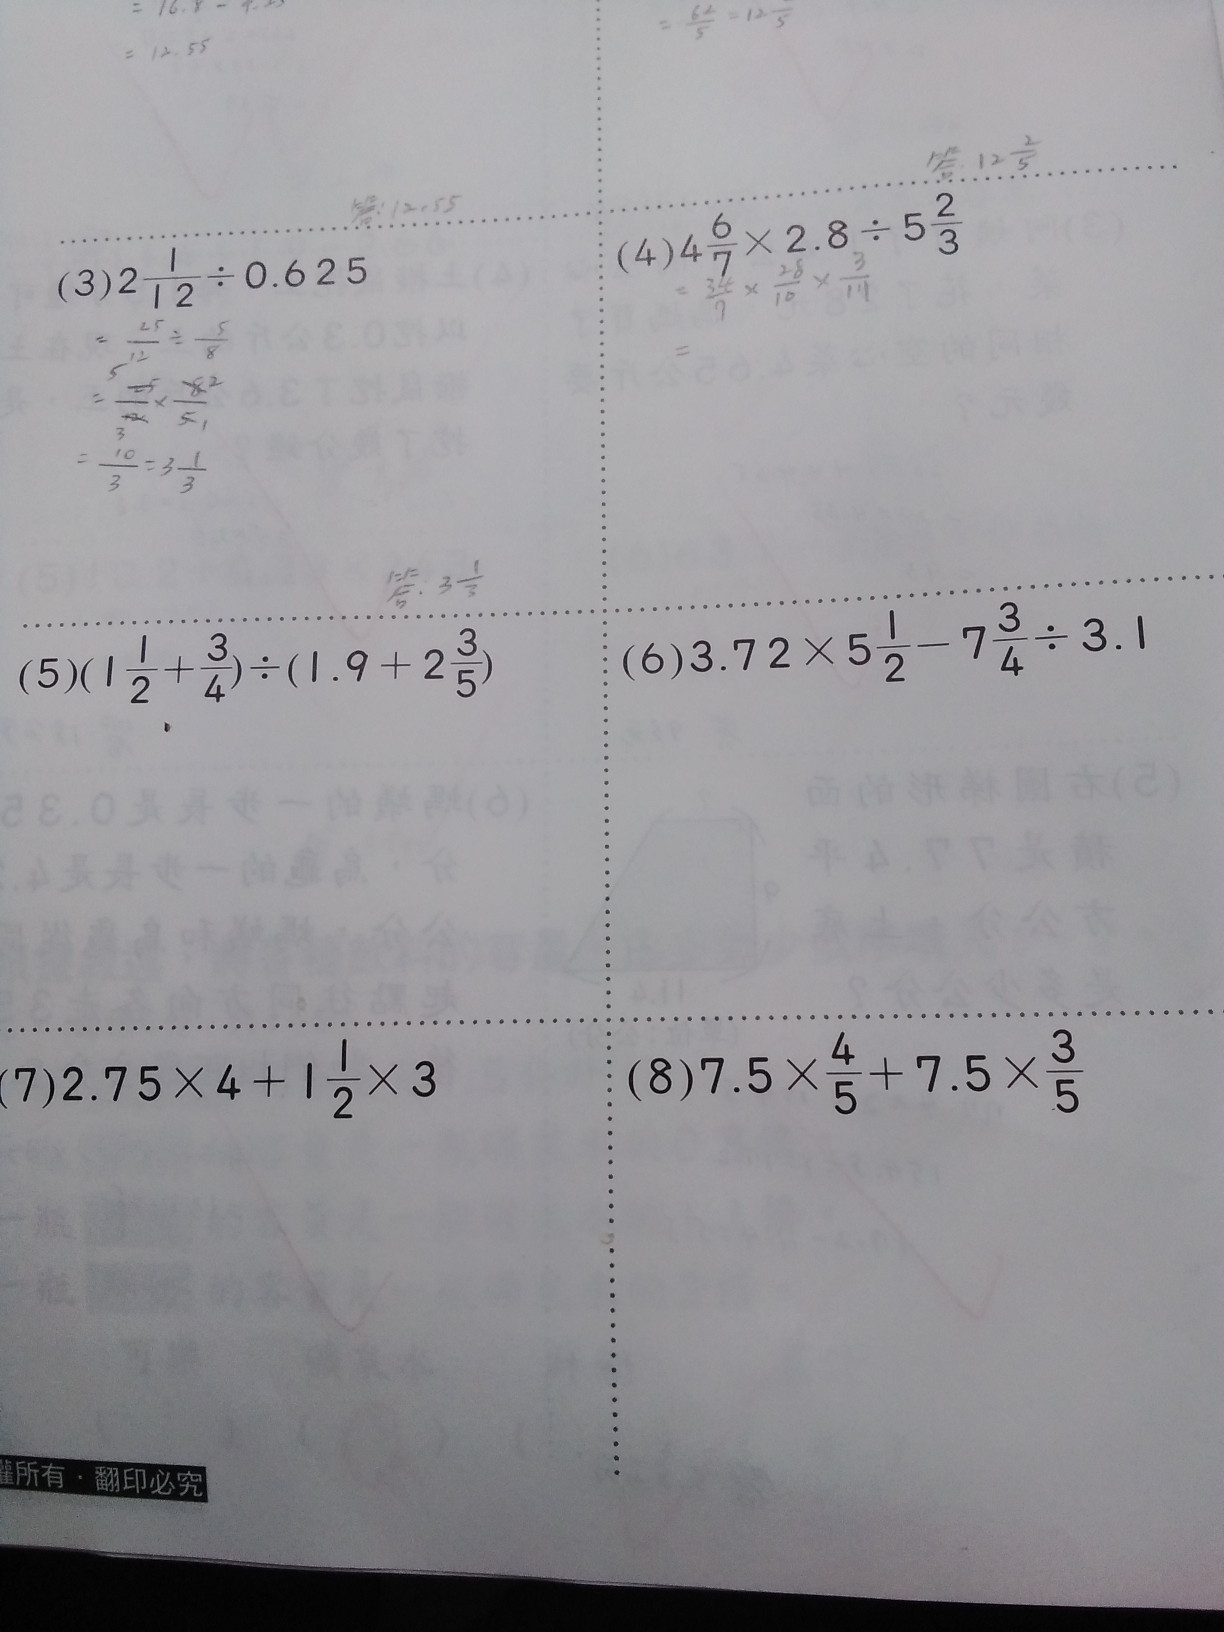 = 16.8 - 4.25
= 12.55
答: 12.55
= 62/5 = 12 2/5
答: 12 2/5
(3) 2 1/12 ÷ 0.625
= 25/12 ÷ 5/8
= 25/12 × 8/5
5 2
3 1
= 10/3 = 3 1/3
答: 3 1/3
(4) 4 6/7 × 2.8 ÷ 5 2/3
= 34/7 × 28/10 × 3/17
=
(5) (1 1/2 + 3/4) ÷ (1.9 + 2 3/5)
(6) 3.72 × 5 1/2 − 7 3/4 ÷ 3.1
(7) 2.75 × 4 + 1 1/2 × 3
(8) 7.5 × 4/5 + 7.5 × 3/5
權所有・翻印必究